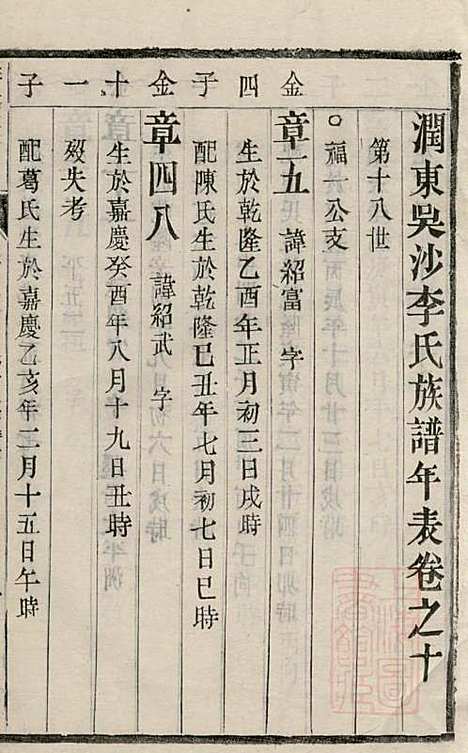 潤東吳沙李氏族譜年表卷之十
第十八世
○福六公支
金四子
章五 諱紹富 字
生於乾隆乙酉年正月初三日戌時
配陳氏生於乾隆己丑年七月初七日巳時
金十一子
章四八 諱紹武 字
生於嘉慶癸酉年八月十九日丑時
歿失考
配葛氏生於嘉慶乙亥年二月十五日午時